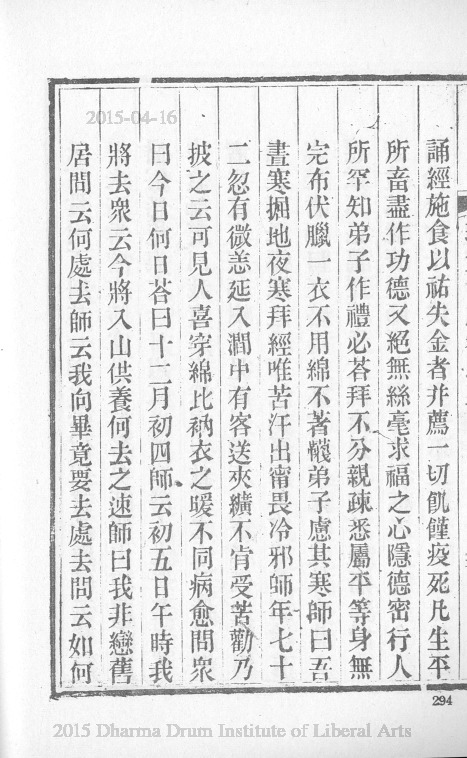 2015-04-16
誦經施食以祐失金者幷薦一切飢饉疫死凡生平
所畜盡作功德又絕無絲毫求福之心隱德密行人
所罕知弟子作禮必荅拜不分親疎悉屬平等身無
完布伏臘一衣不用綿不著襪弟子慮其寒師曰吾
晝寒掘地夜寒拜經唯苦汗出甯畏冷邪師年七十
二忽有微恙延入澗中有客送夾纊不肯受苦勸乃
披之云可見人喜穿綿比衲衣之暖不同病愈問衆
曰今日何日荅曰十二月初四師云初五日午時我
將去衆云今將入山供養何去之速師曰我非戀舊
居問云何處去師云我向畢竟要去處去問云如何
294
2015 Dharma Drum Institute of Liberal Arts